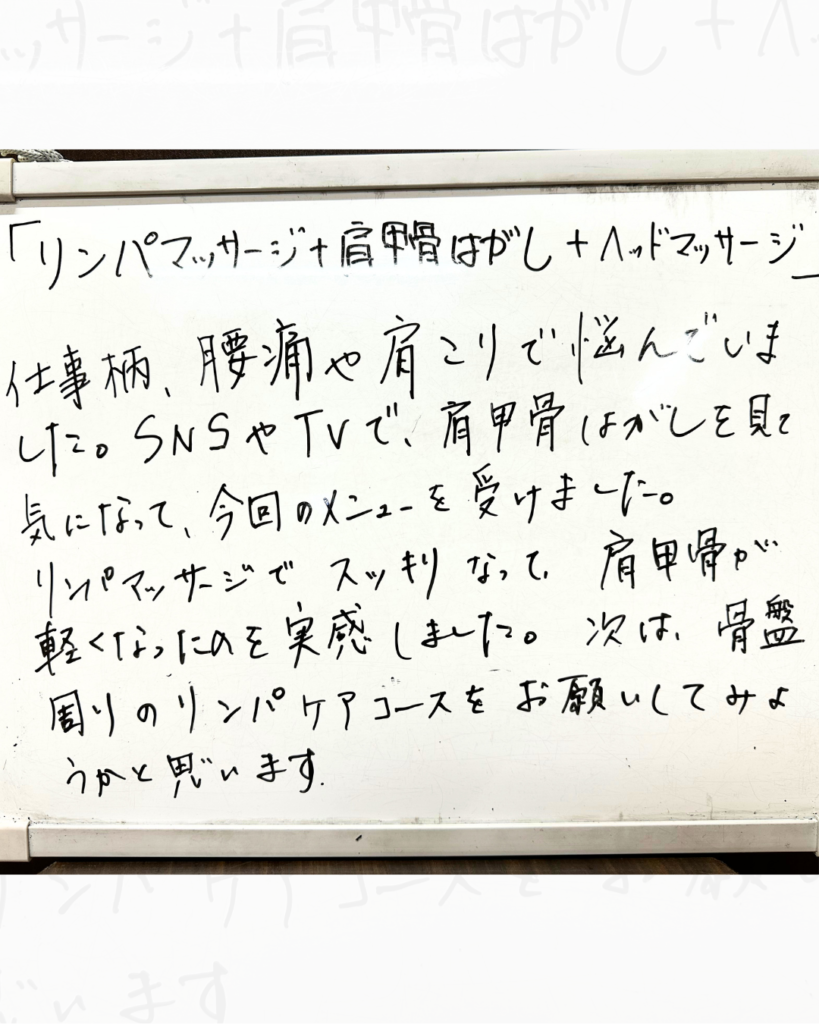 「リンパマッサージ+肩甲骨はがし+ヘッドマッサージ」
仕事柄、腰痛や肩こりで悩んでいま
した。SNSやTVで、肩甲骨はがしを見て
気になって、今回のメニューを受けました。
リンパマッサージでスッキリなって、肩甲骨が
軽くなったのを実感しました。次は、骨盤
周りのリンパケアコースをお願いしてみよ
うかと思います.